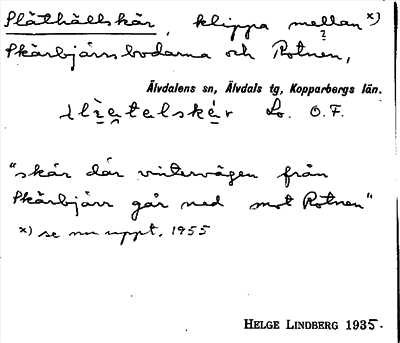 Slåthällskär, klippa mellan x)
Skärbjörsbodarna och Rotnen,
Älvdalens sn, Älvdals tg, Kopparbergs län.
Lo. O.F.
"skär där vintervägen från
Skärbjörr går ned mot Rotnen"
x) se nu uppt. 1955
HELGE LINDBERG 1935.